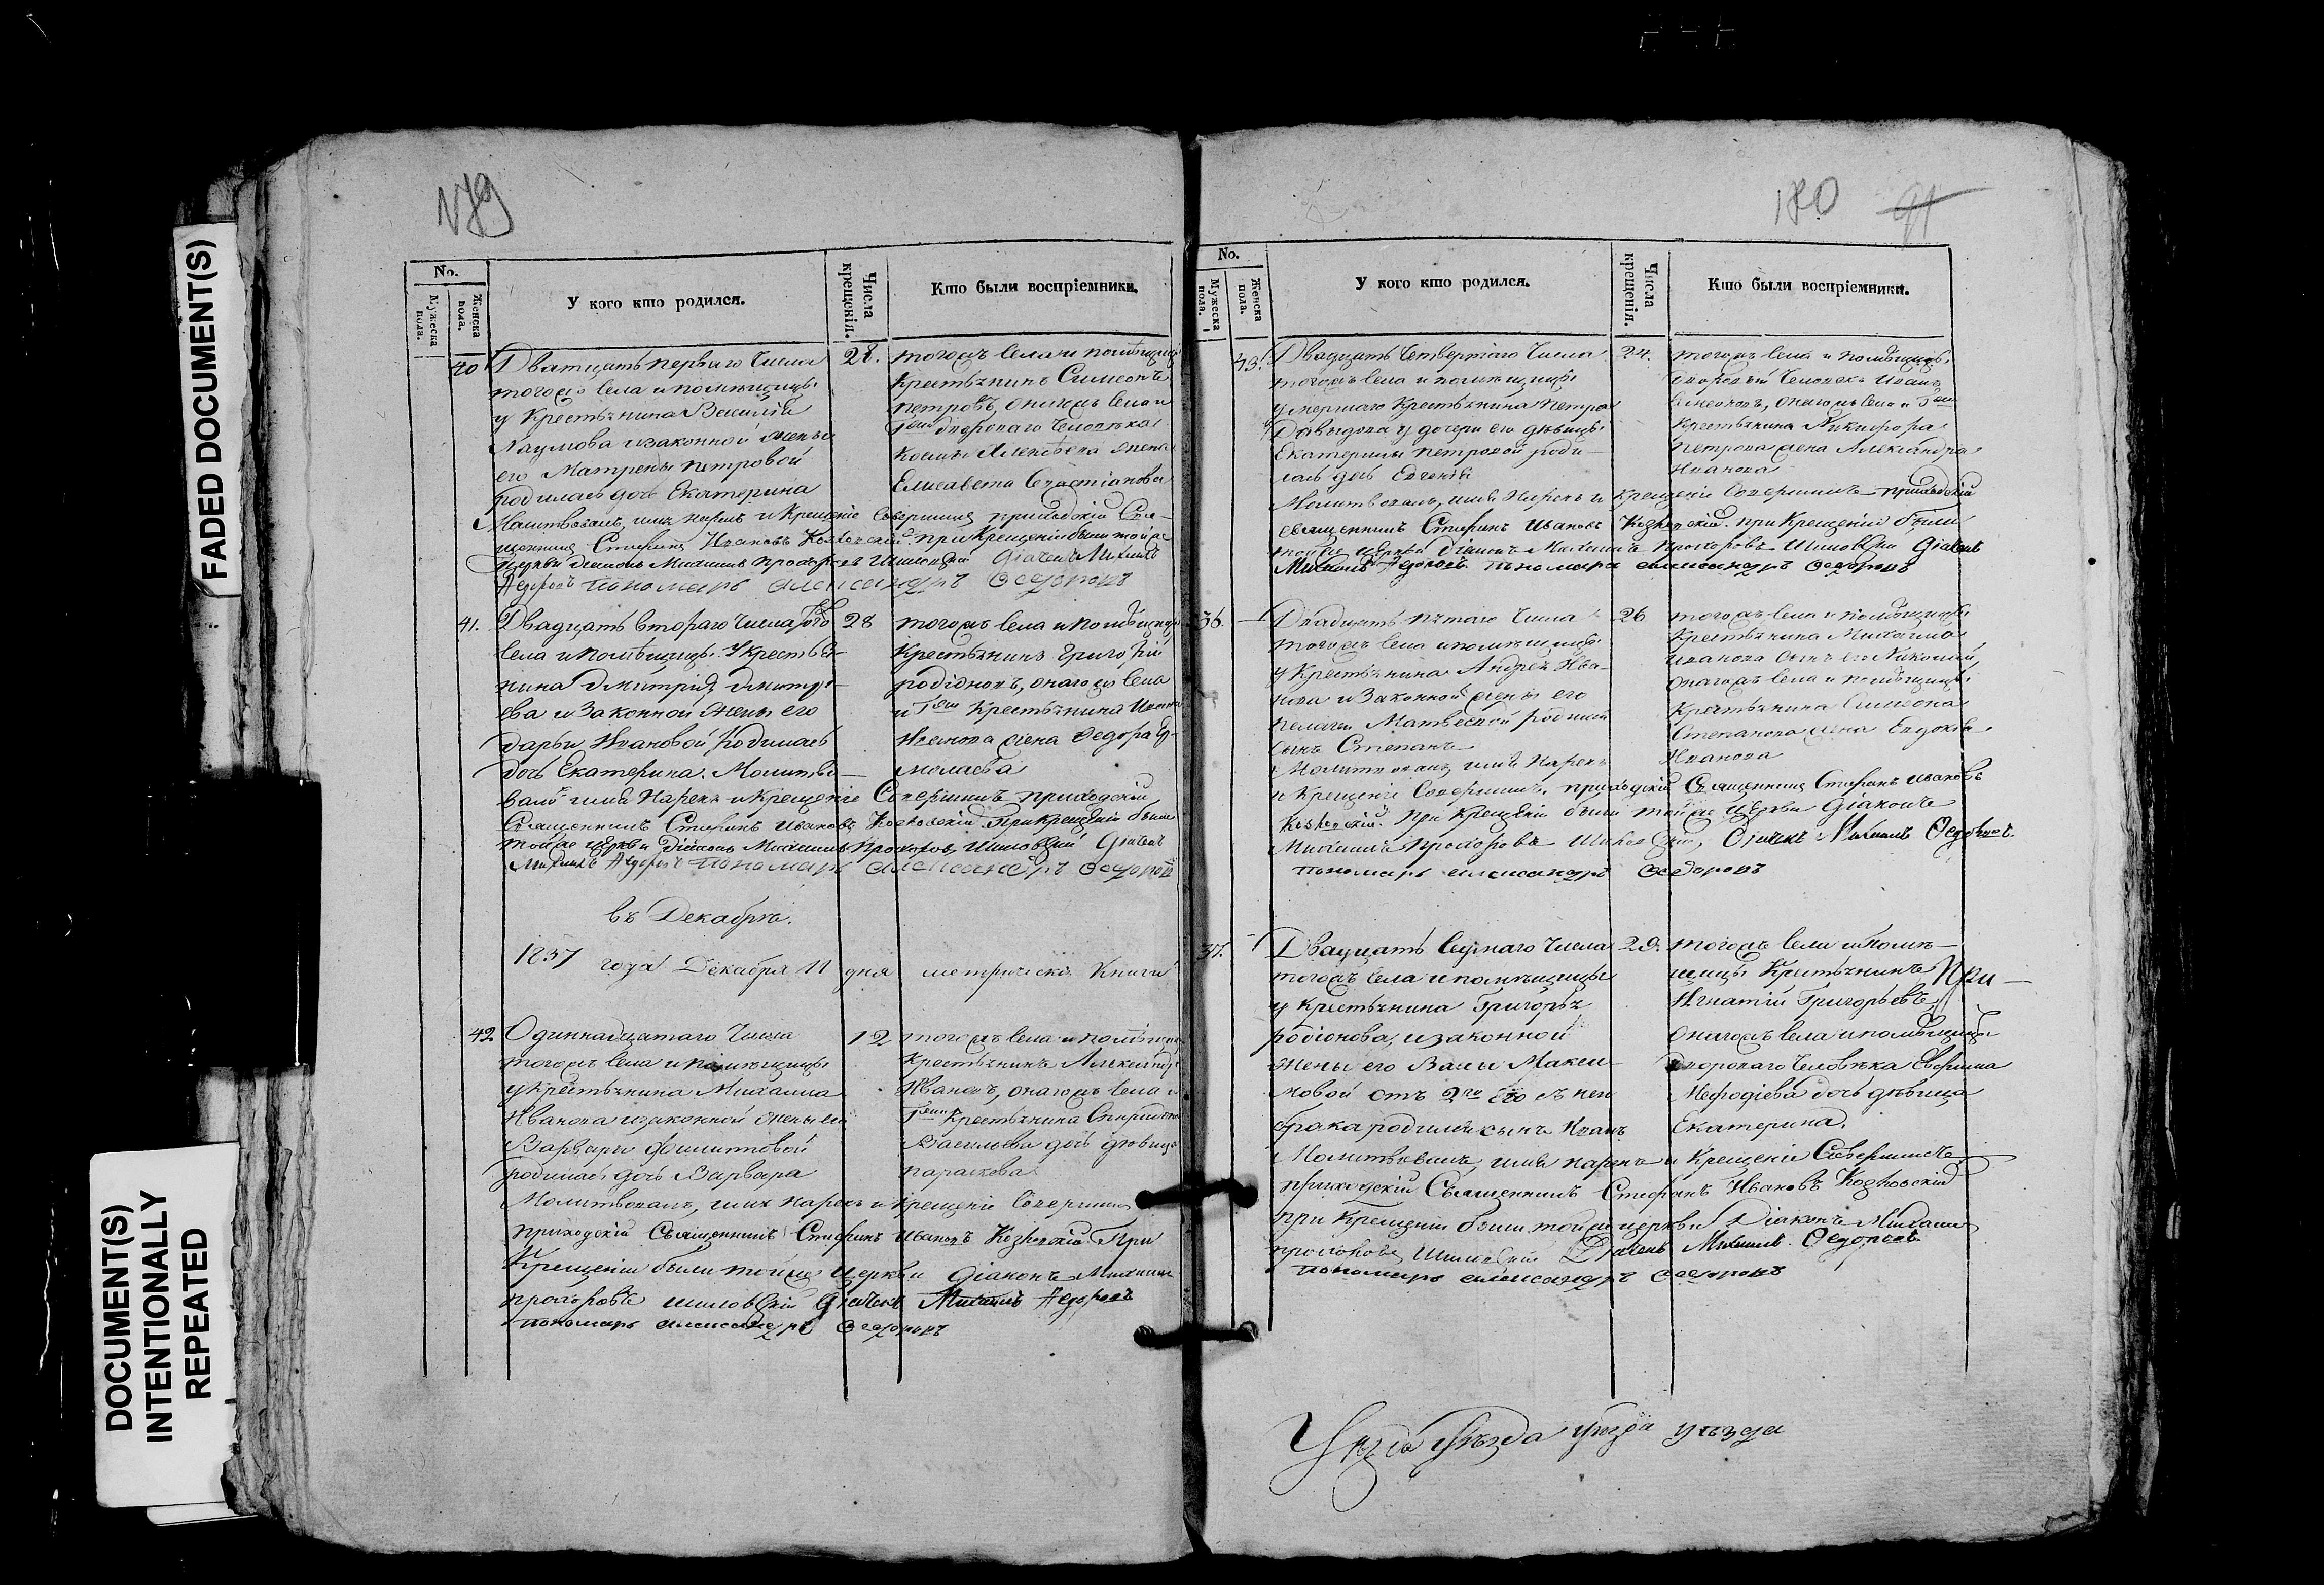 FADED DOCUMENT(S)
DOCUMENT(S)
INTENTIONALLY
REPEATED
179
No.
Мужеска пола.
Женска пола.
У кого кто родился.
Числа крещенія.
Кто были воспріемники.
40
Дватцать перваго числа
тогожъ села и помѣщицы
у Крестьянина Василія
Наумова и законной жены
его Матрены Петровой
родилась дочь Екатерина
28.
тогожъ села и помѣщицы
Крестьянинъ Симеонъ
Петровъ, онагожъ села и
Гжи двороваго человѣка
жена
Елисавета
Молитвовалъ, имя нарекъ и крещеніе совершилъ приходскій Свя-
щенникъ Стефанъ Ивановъ при крещеніи были тойже
церкви діаконъ Михаилъ Прохоровъ дьячекъ Михаилъ
Федоровъ пономарь Александръ Федоровъ
41.
Двадцать втораго числа того
села и помѣщицы у крестья-
нина Дмитрія Дмитрі-
ева и законной жены его
Дарьи Ивановой родилась
дочь Екатерина. Молитво-
28
тогожъ села и помѣщицы
Крестьянинъ Григорій
Родіоновъ, онагожъ села
и Гжи Крестьянина
жена Федора Ер-
молаева
валъ имя нарекъ и крещеніе совершилъ приходскій
Священникъ Стефанъ Ивановъ При крещеніи были
тойже церкви діаконъ Михаилъ Прохоровъ дьячекъ
Михаилъ Федоровъ пономарь Александръ Федоровъ
въ Декабрѣ.
1837 года Декабря 11 дня метрическія книги
42
Одиннадцатаго числа
тогожъ села и помѣщицы
у крестьянина Михаила
Иванова и законной жены его
Варвары
родилась дочь Варвара
12
тогожъ села и помѣщицы
крестьянинъ
Ивановъ, онагожъ села и
Гжи Крестьянина
Васильева дочь дѣвица
Параскева
Молитвовалъ, имя нарекъ и крещеніе совершилъ
приходскій Священникъ Стефанъ Ивановъ При
Крещеніи были тойже церкви діаконъ Михаилъ
Прохоровъ дьячекъ Михаилъ Федоровъ
пономарь Александръ Федоровъ
180
91
No.
Мужеска пола.
Женска пола.
У кого кто родился.
Числа крещенія.
Кто были воспріемники.
43.
Двадцать четвертаго числа
тогожъ села и помѣщицы
умершаго Крестьянина Петра
Давыдова у дочери его дѣвицы
Екатерины Петровой роди-
лась дочь Евгенія
24.
тогожъ села и помѣщицы
дворовый человекъ Иванъ
онагожъ села и Гжи
Крестьянина Никифора
Петрова жена Александра
Иванова
Молитвовалъ, имя нарекъ и крещеніе совершилъ приходскій
священникъ Стефанъ Ивановъ при Крещеніи были
тойже церкви діаконъ Михаилъ Прохоровъ дьячекъ
Михаилъ Федоровъ пономарь Александръ Федоровъ
36.
Двадцать пятаго числа
тогожъ села и помѣщицы
у Крестьянина Андрея Ива-
нова и законной жены его
Пелагеи Матвеевой родился
сынъ Степанъ
Молитвовалъ имя нарекъ
26
тогожъ села и помѣщицы
Крестьянина Михаила
Иванова сынъ его Николай,
онагожъ села и помѣщицы
Крестьянина Симеона
Степанова жена Евдокія
Иванова
и Крещеніе совершилъ приходскій Священникъ Стефанъ Ивановъ
При Крещеніи были тойже церкви діаконъ
Михаилъ Прохоровъ Дьячекъ Михаилъ Федоровъ
пономарь Александръ Федоровъ
37.
Двадцать седмаго числа
тогожъ села и помѣщицы
у крестьянина Григорья
Родіонова, и законной
жены его Вассы Макси-
мовой отъ 2го его съ нею
брака родился сынъ Иванъ
29.
тогожъ села и помѣ-
щицы Крестьянинъ При
Игнатій Григорьевъ,
онагожъ села и помѣщицы
двороваго человѣка Ефрима
Мефодіева дочь дѣвица
Екатерина.
Молитвовалъ, имя нарекъ и Крещеніе Совершилъ
приходскій Священникъ Стефанъ Ивановъ
при Крещеніи были тойже церкви Діаконъ Михаилъ
Прохоровъ Дьячекъ Михаилъ Федоровъ
пономарь Александръ Федоровъ
Уѣзда уѣзда уѣзда уѣзда